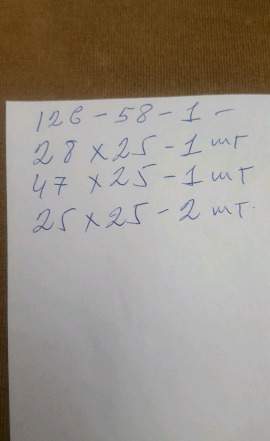 126 - 58 - 1 -
28 x 25 - 1 шт
47 x 25 - 1 шт
25 x 25 - 2 шт.